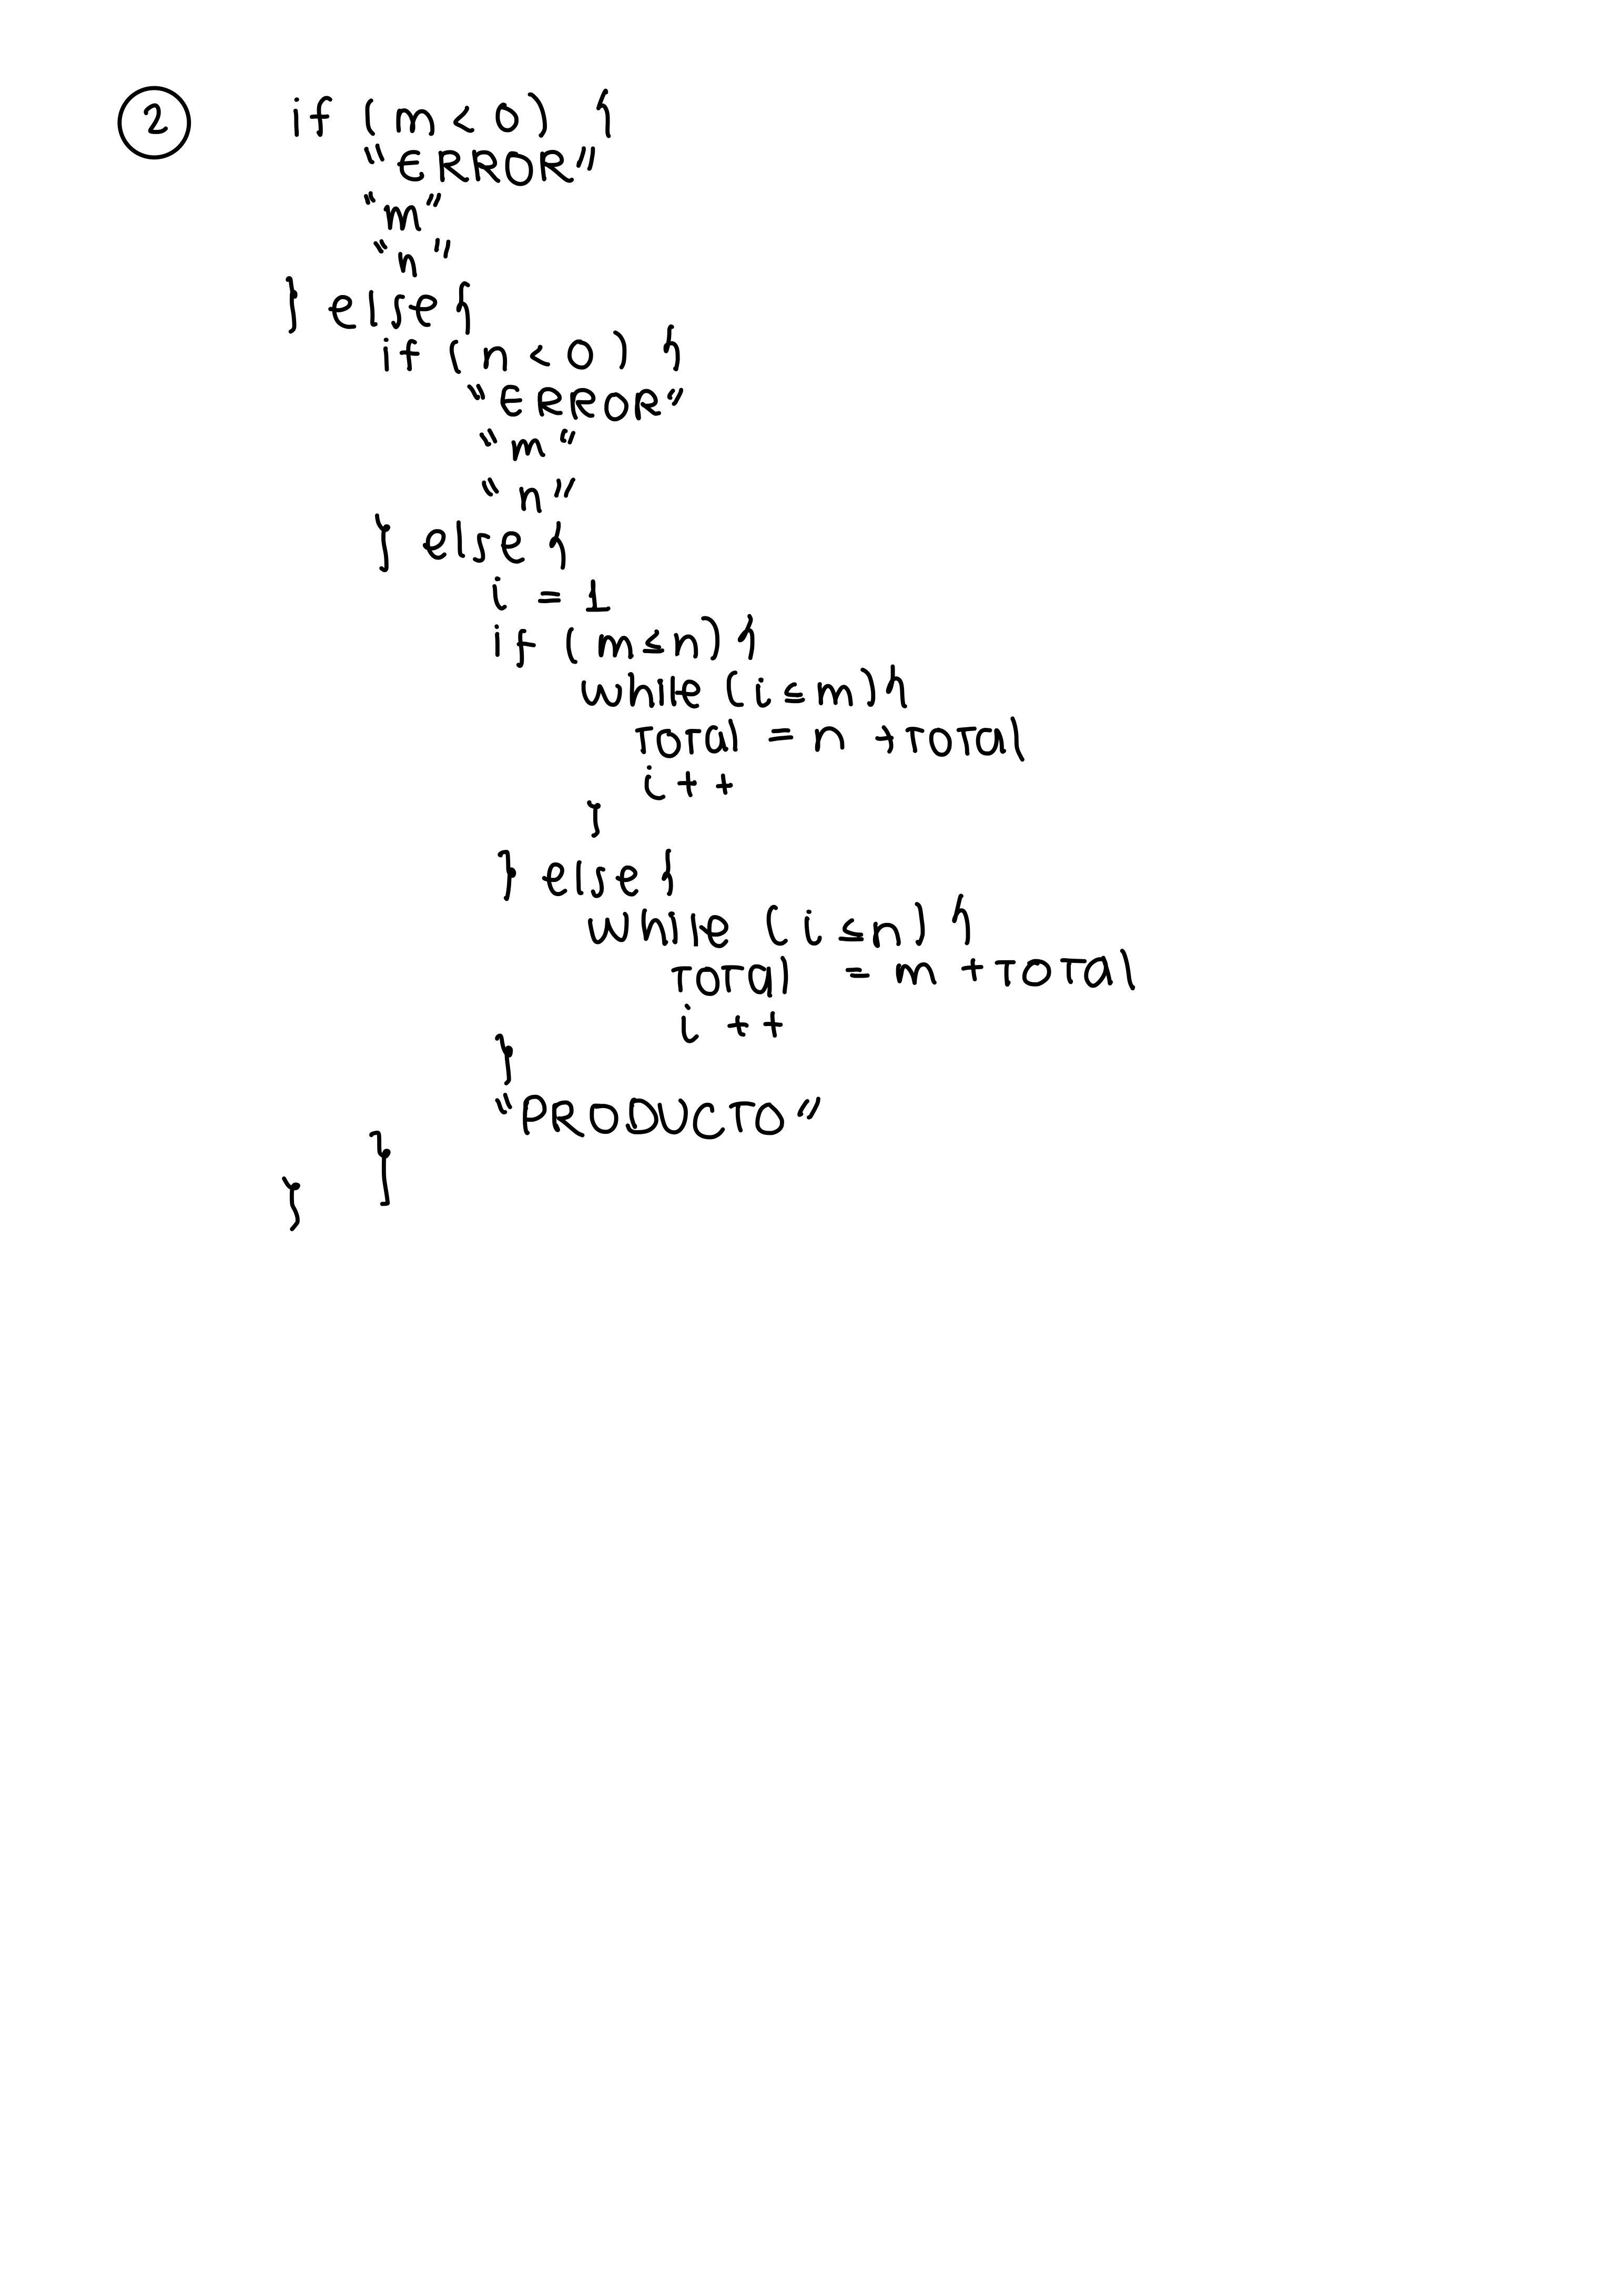 2 if (m < 0) {
"ERROR"
"m"
"n"
} else {
if (n < 0) {
"ERROR"
"m"
"n"
} else {
i = 1
if (m ≤ n) {
while (i ≤ m) {
TOTAl = n + TOTAl
i++
}
} else {
while (i ≤ n) {
TOTAl = m + TOTAl
i ++
}
"PRODUCTO"
}
}